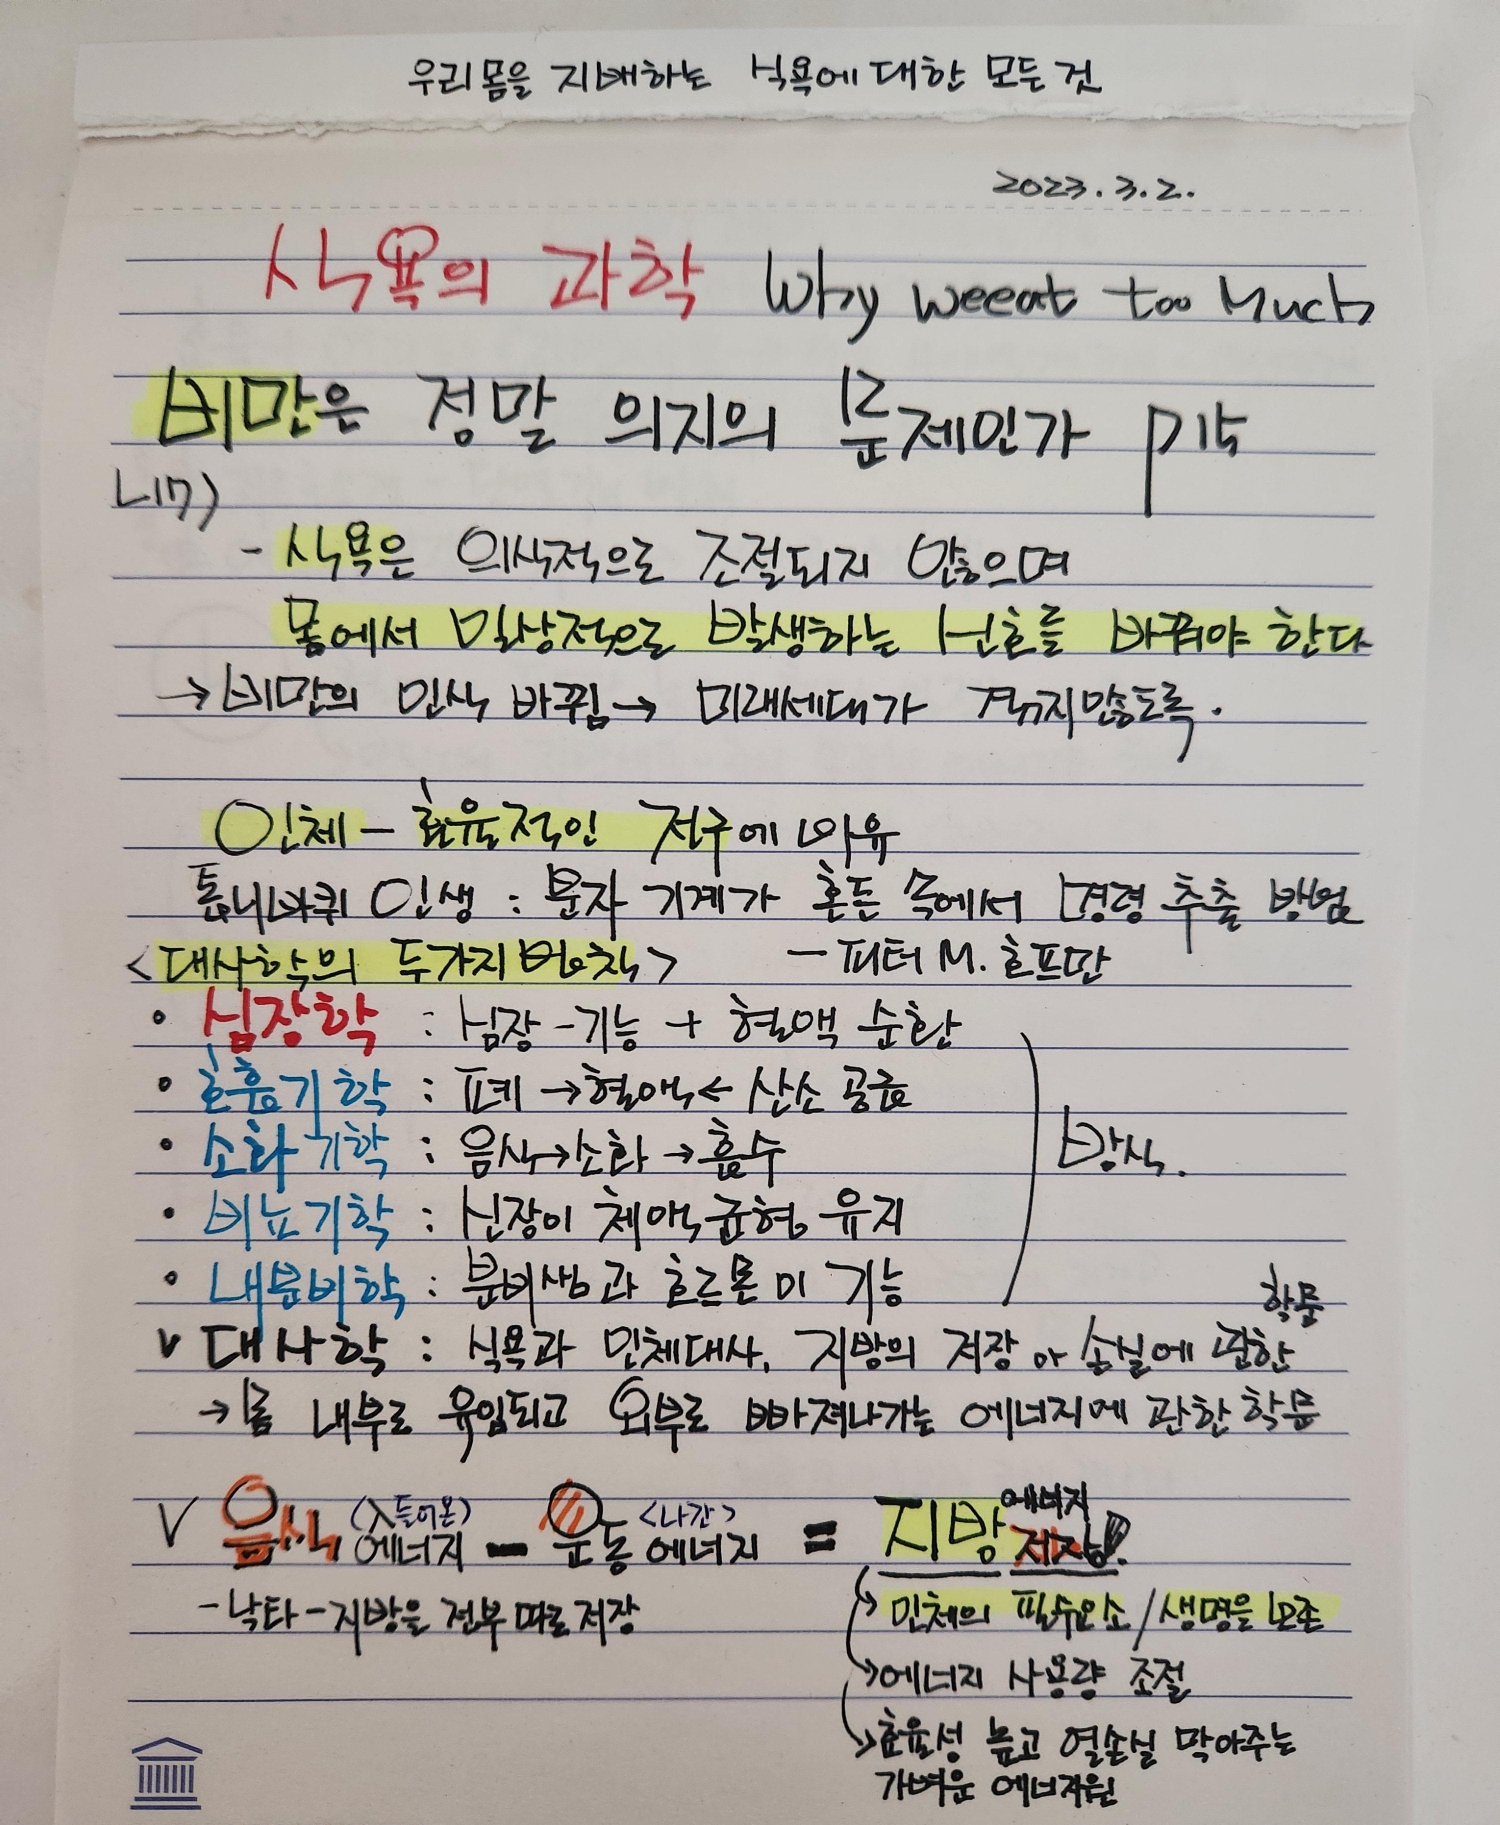 우리몸을 지배하는 식욕에 대한 모든 것
2023.3.2.
식욕의 과학 Why we eat too Much
비만은 정말 의지의 문제인가 P15
나17)
- 식욕은 의식적으로 조절되지 않으며
몸에서 일상적으로 발생하는 신호를 바꿔야 한다
→ 비만의 인식 바뀜 → 미래세대가 겪지않도록.
인체 - 효율적인 전구에 비유
톱니바퀴 인생 : 분자 기계가 혼돈 속에서 명령 추출 방법
<대사학의 두가지 법칙> - 피터 M. 호프만
• 심장학 : 심장 - 기능 + 혈액 순환
• 호흡기학 : 폐 → 혈액 ← 산소 공급
• 소화기학 : 음식 → 소화 → 흡수
방식.
• 비뇨기학 : 신장이 체액균형 유지
• 내분비학 : 분비샘과 호르몬의 기능
v 대사학 : 식욕과 인체대사, 지방의 저장 과 손실에 관한 학문
→ 몸 내부로 유입되고 외부로 빠져나가는 에너지에 관한 학문
v 음식 (들어온) 에너지 - 운동 <나간> 에너지 = 지방 에너지 저장!
- 낙타 - 지방을 전부 따로 저장
→ 인체의 필수요소 / 생명을 보존
→ 에너지 사용량 조절
→ 효율성 높고 열손실 막아주는
가벼운 에너지원